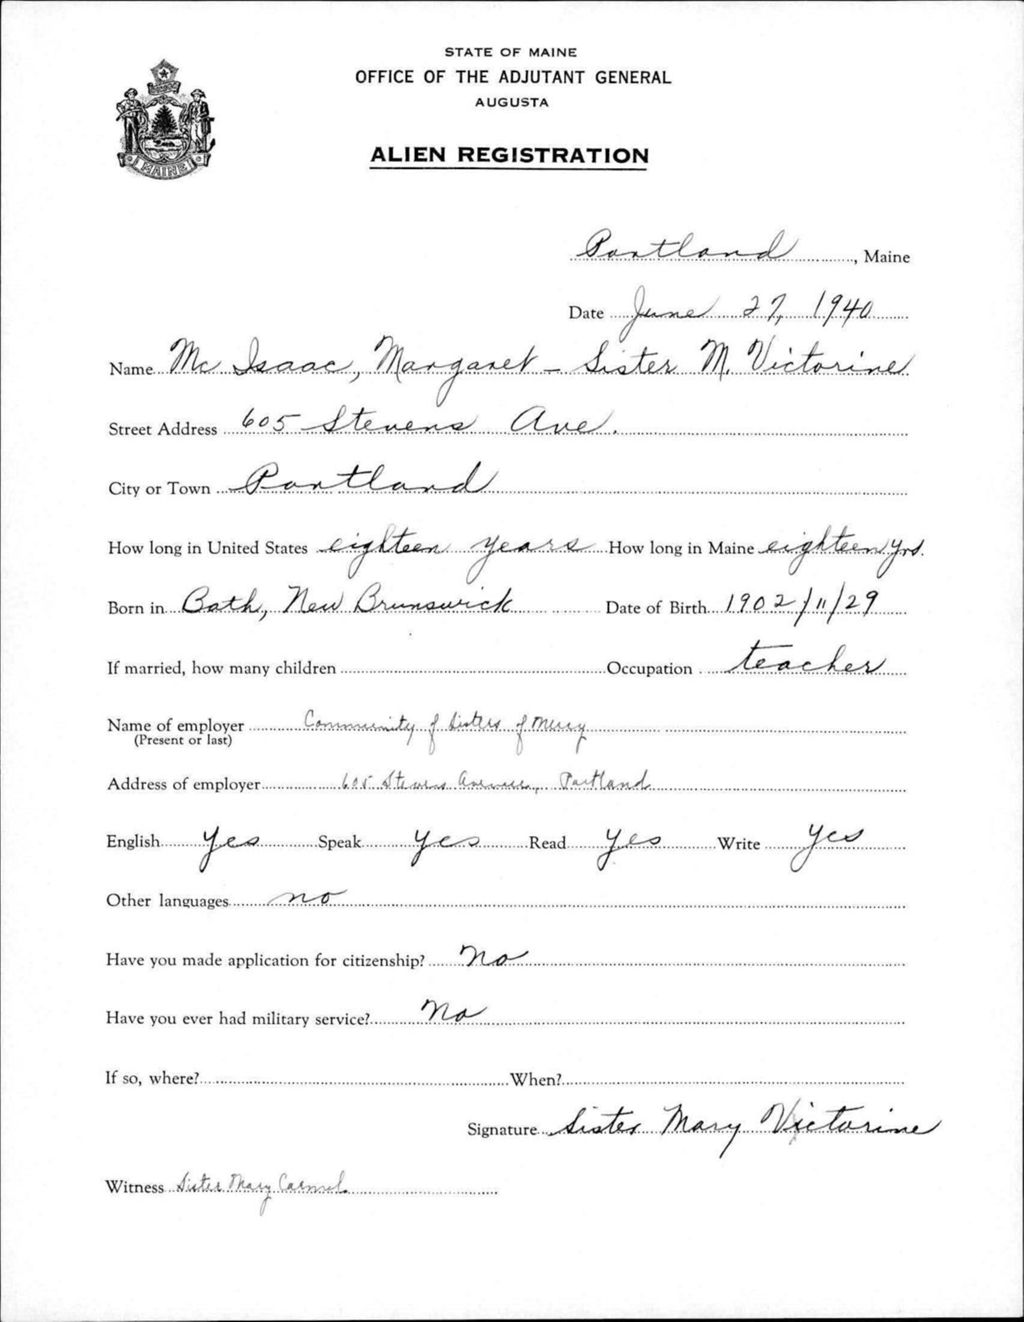 STATE OF MAINE
OFFICE OF THE ADJUTANT GENERAL
AUGUSTA
ALIEN REGISTRATION
MAINE
Portland, Maine
Date June 27, 1940
Name Mc Isaac, Margaret - Sister M. Victorine
Street Address 605 Stevens Ave.
City or Town Portland
How long in United States eighteen years How long in Maine eighteen yrs.
Born in Bath, New Brunswick Date of Birth 1902/11/29
If married, how many children Occupation teacher
Name of employer Community of Sisters of Mercy
(Present or last)
Address of employer 605 Stevens Avenue, Portland
English Yes Speak yes Read yes Write yes
Other languages no
Have you made application for citizenship? No
Have you ever had military service? No
If so, where? When?
Signature Sister Mary Victorine
Witness Sister Mary Carmel